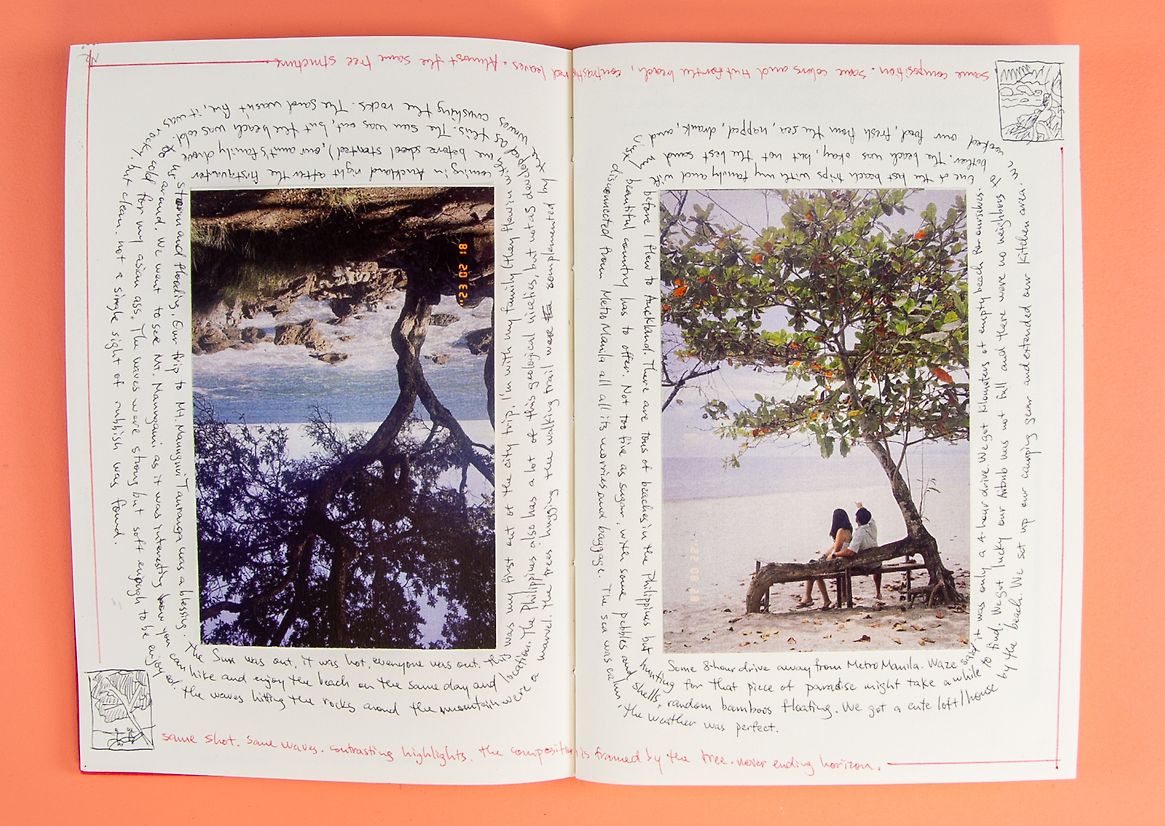 same composition. same colors and that frontline beach, contrasting red leaves. Almost the same tree structure.
coming in Auckland right after the first quarter
storm and flooding, Our trip to Mt. Maunganui Tauranga was a blessing.
The Sun was out, it was hot everyone was out. This
was my first out of the city trip. I'm with my family (they flew in with
me before school started), our aunt's family drove
us around. We went to see Mt. Maunganui as it was interesting how you
can hike and enjoy the beach on the same day and
location. The Philippines also has a lot of this geological niceties, but not as developed
as this. The sun was out, but the beach was cold,
too cold for my asian ass. The waves were strong but soft enough to be
enjoyed. The waves hitting the rocks around the mountain were a
marvel. The trees hugging the walking trail were complemented by
the waves crushing the rocks. The sand wasn't fine, it was
rocky, but clean, not a single sight of rubbish was found.
Some 8-hour drive away from Metro Manila. Waze
it was only a 4-hour drive. We got kilometers of empty beach for ourselves.
One of the last beach trips with my family and wife
just before I flew to Auckland. There are tons of beaches in the Philippines but
hunting for that piece of paradise might take a while
to find. We got lucky our Airbnb was not full and there were no neighbors
to bother. The beach was okay, but not the best sand
my beautiful country has to offer. Not too fine as sugar, with some pebbles
and shells, random bamboos floating. We got a cute loft/house
by the beach. We set up our camping gear and extended our kitchen area.
We cooked our food, fresh from the sea, napped, drank, and
disconnected from Metro Manila all its worries and baggage. The sea was calm,
the weather was perfect.
same shot. same waves. contrasting highlights. the composition is framed by the tree. never ending horizon.